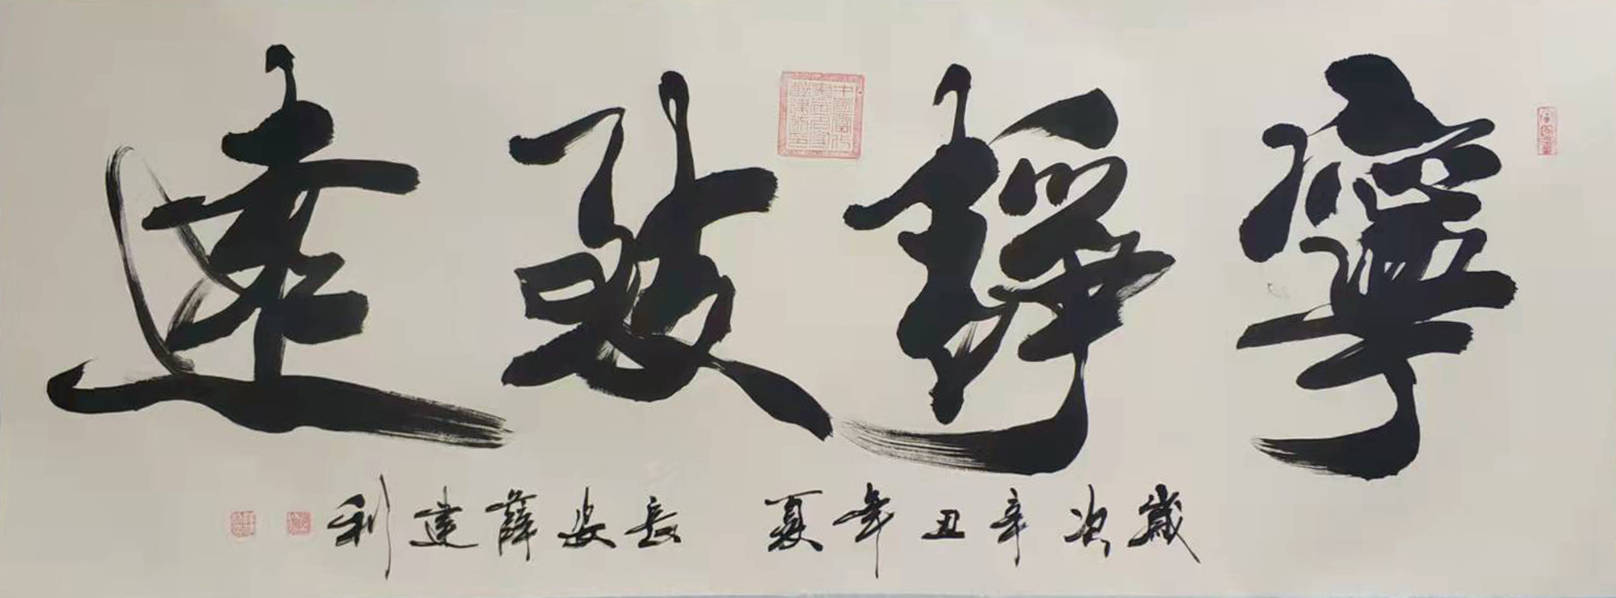 寧靜致遠
歲次辛丑年夏 長安薛建利